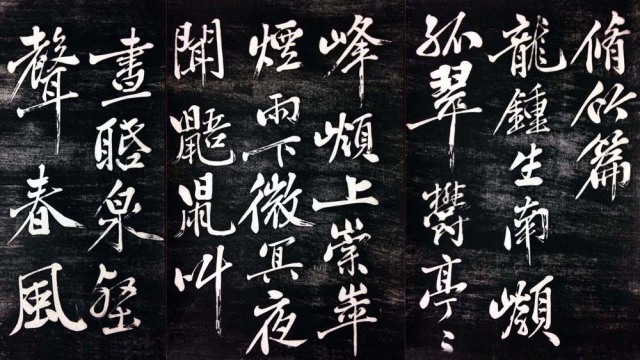 脩竹篇
龍鍾生南巔
孤翠鬱亭〻
峰嶺上崇崒
煙雨下微冥夜
聞鼯鼠叫
晝聒泉壑
聲春風